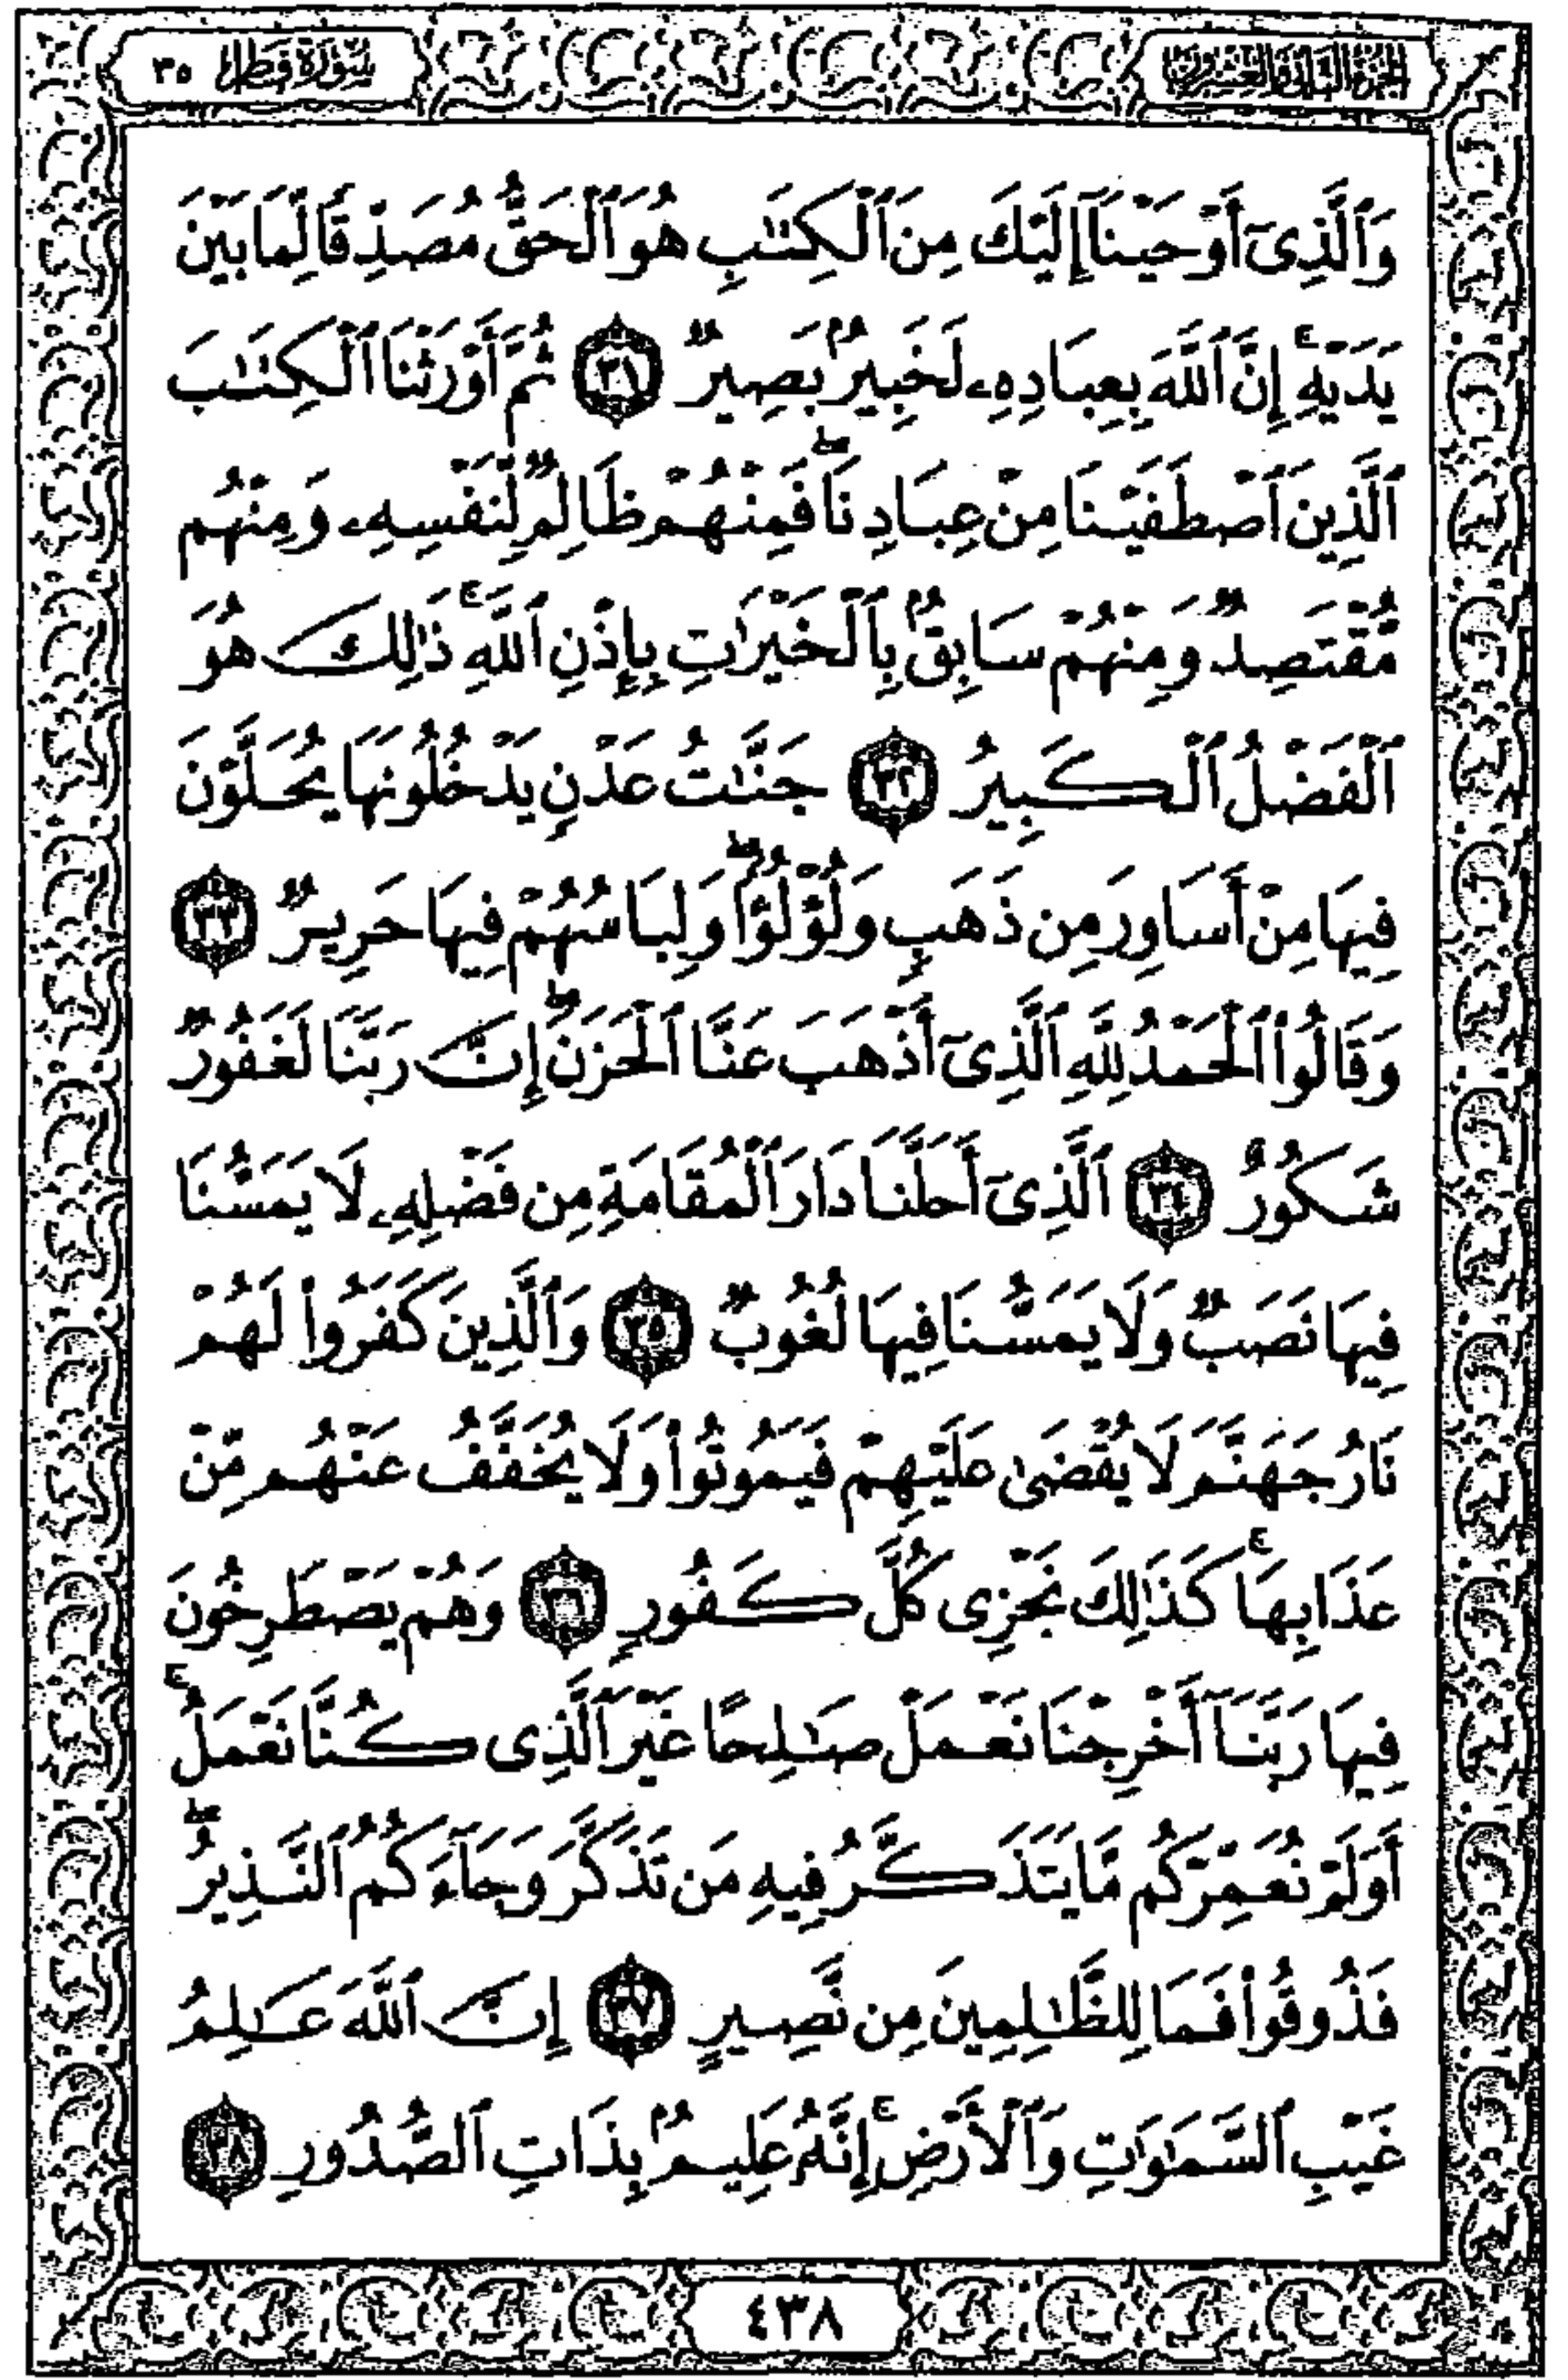 الجزء الثاني والعشرون
سورة فطر ٣٥
وَٱلَّذِىٓ أَوْحَيْنَآ إِلَيْكَ مِنَ ٱلْكِتَـٰبِ هُوَ ٱلْحَقُّ مُصَدِّقًا لِّمَا بَيْنَ
يَدَيْهِ ۚ إِنَّ ٱللَّهَ بِعِبَادِهِۦ لَخَبِيرٌۢ بَصِيرٌ ٣١ ثُمَّ أَوْرَثْنَا ٱلْكِتَـٰبَ
ٱلَّذِينَ ٱصْطَفَيْنَا مِنْ عِبَادِنَا ۖ فَمِنْهُمْ ظَالِمٌ لِّنَفْسِهِۦ وَمِنْهُم
مُّقْتَصِدٌ وَمِنْهُمْ سَابِقٌۢ بِٱلْخَيْرَٰتِ بِإِذْنِ ٱللَّهِ ۚ ذَٰلِكَ هُوَ
ٱلْفَضْلُ ٱلْكَبِيرُ ٣٢ جَنَّـٰتُ عَدْنٍ يَدْخُلُونَهَا يُحَلَّوْنَ
فِيهَا مِنْ أَسَاوِرَ مِن ذَهَبٍ وَلُؤْلُؤًا ۖ وَلِبَاسُهُمْ فِيهَا حَرِيرٌ ٣٣
وَقَالُوا۟ ٱلْحَمْدُ لِلَّهِ ٱلَّذِىٓ أَذْهَبَ عَنَّا ٱلْحَزَنَ ۖ إِنَّ رَبَّنَا لَغَفُورٌ
شَكُورٌ ٣٤ ٱلَّذِىٓ أَحَلَّنَا دَارَ ٱلْمُقَامَةِ مِن فَضْلِهِۦ لَا يَمَسُّنَا
فِيهَا نَصَبٌ وَلَا يَمَسُّنَا فِيهَا لُغُوبٌ ٣٥ وَٱلَّذِينَ كَفَرُوا۟ لَهُمْ
نَارُ جَهَنَّمَ لَا يُقْضَىٰ عَلَيْهِمْ فَيَمُوتُوا۟ وَلَا يُخَفَّفُ عَنْهُم مِّنْ
عَذَابِهَا ۚ كَذَٰلِكَ نَجْزِى كُلَّ كَفُورٍ ٣٦ وَهُمْ يَصْطَرِخُونَ
فِيهَا رَبَّنَآ أَخْرِجْنَا نَعْمَلْ صَـٰلِحًا غَيْرَ ٱلَّذِى كُنَّا نَعْمَلُ ۚ
أَوَلَمْ نُعَمِّرْكُم مَّا يَتَذَكَّرُ فِيهِ مَن تَذَكَّرَ وَجَآءَكُمُ ٱلنَّذِيرُ ۖ
فَذُوقُوا۟ فَمَا لِلظَّـٰلِمِينَ مِن نَّصِيرٍ ٣٧ إِنَّ ٱللَّهَ عَـٰلِمُ
غَيْبِ ٱلسَّمَـٰوَٰتِ وَٱلْأَرْضِ ۚ إِنَّهُۥ عَلِيمٌۢ بِذَاتِ ٱلصُّدُورِ ٣٨
٤٣٨